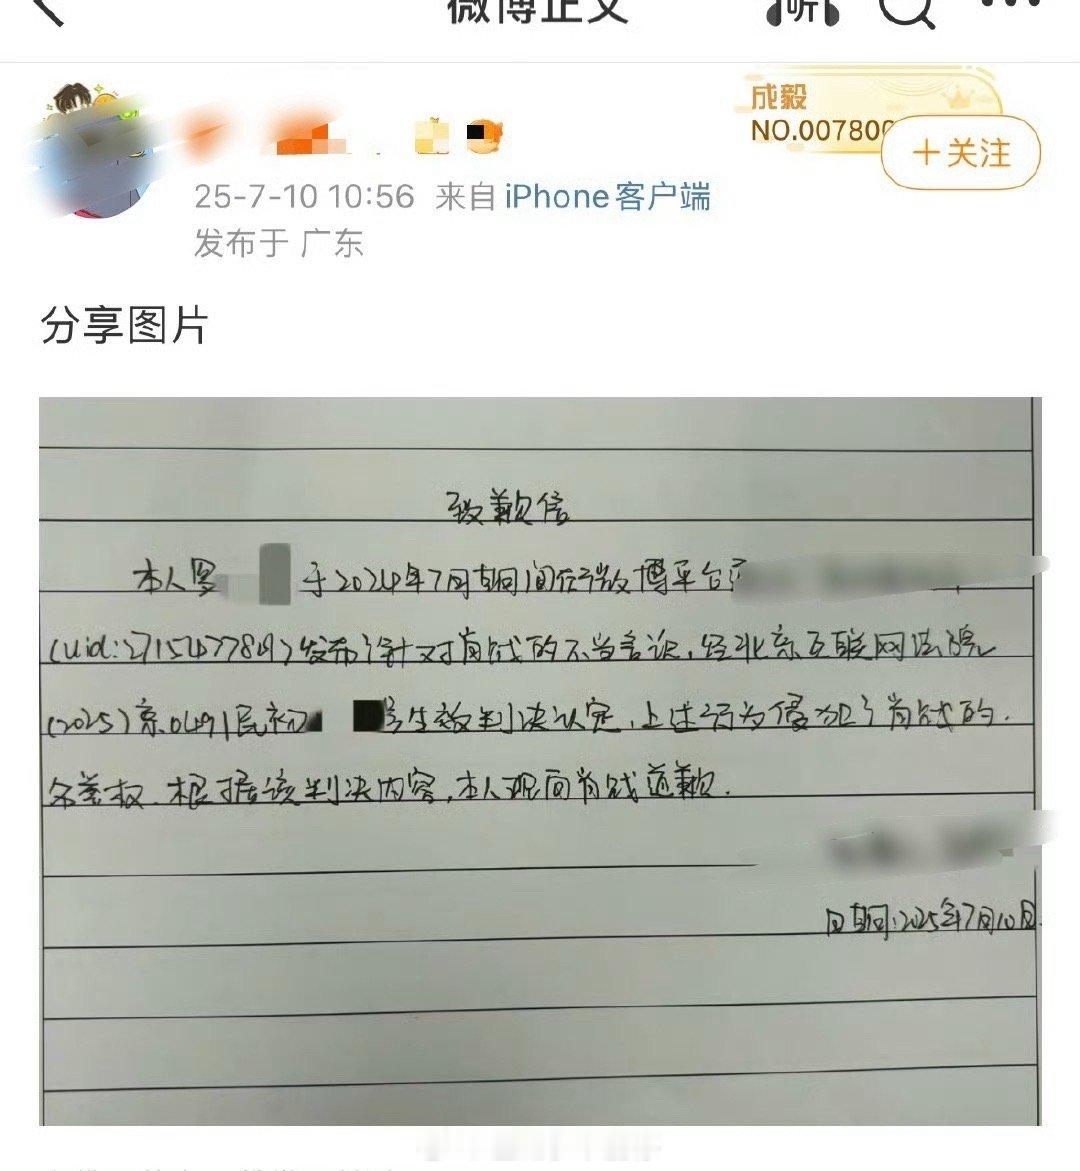 微博正文
听
成毅
NO.00780
+关注
25-7-10 10:56 来自 iPhone客户端
发布于 广东
分享图片
致歉信
本人罗 于2024年7月期间在微博平台
(uid:2715477849)发布针对肖战的不当言论,经北京互联网法院
(2025)京0491民初 号生效判决认定,上述行为侵犯了肖战的
名誉权.根据该判决内容,本人现向肖战道歉.
日期:2025年7月10日.